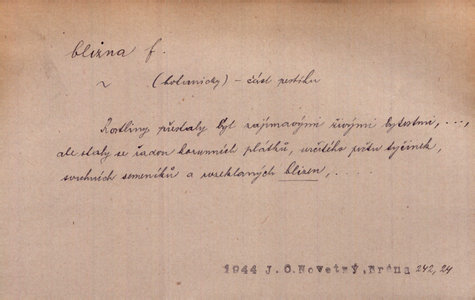 blizna f.
~ (botanicky) – část pestíku
Rostliny přestaly být zajímavými živými bytostmi, ...,
ale staly se řadou korunních plátků, určitého počtu tyčinek,
svrchních semeníků a rozeklaných blizen, .....
1944 J.O.Novotný, Brána 242, 24